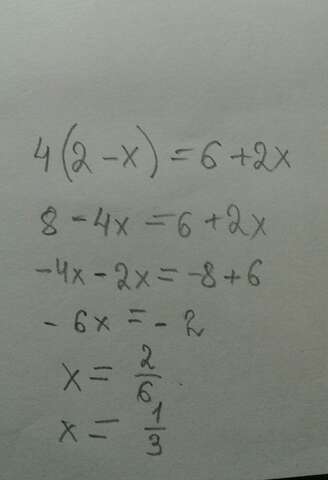 4(2-x)=6+2x
8-4x=6+2x
-4x-2x=-8+6
-6x=-2
x=2/6
x=1/3